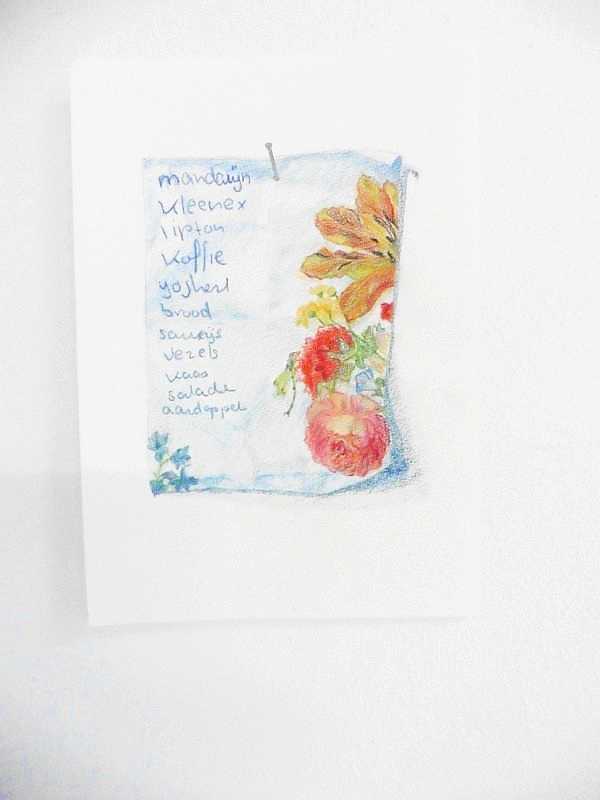 mandarijn
Kleenex
lipton
Koffie
yoghert
brood
saucijs
vezels
kaas
salade
aardappel